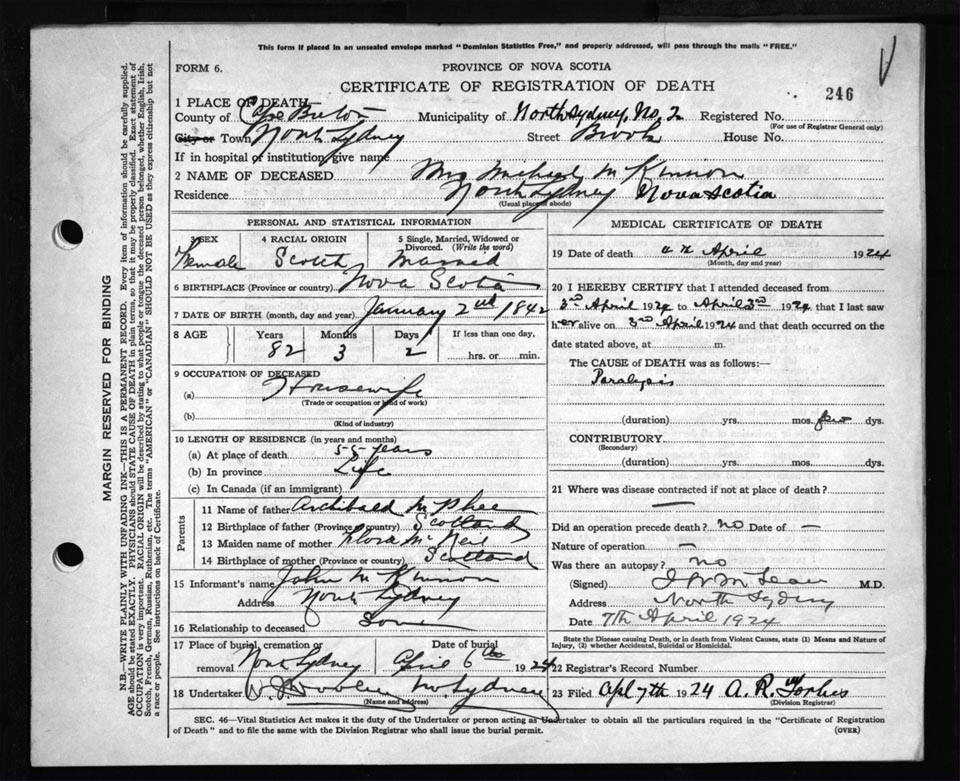 This form if placed in an unsealed envelope marked "Dominion Statistics Free," and properly addressed, will pass through the mails "FREE."
FORM 6.
PROVINCE OF NOVA SCOTIA
CERTIFICATE OF REGISTRATION OF DEATH
246
1 PLACE OF DEATH
County of Cape Breton Municipality of North Sydney, No. 2 Registered No.
(For use of Registrar General only)
City or Town North Sydney Street Brook House No.
If in hospital or institution, give name
2 NAME OF DECEASED Mrs Michael McKinnon
Residence North Sydney Nova Scotia
(Usual place of abode)
PERSONAL AND STATISTICAL INFORMATION
3 SEX Female
4 RACIAL ORIGIN Scotch
5 Single, Married, Widowed or Divorced. (Write the word) Married
6 BIRTHPLACE (Province or country) Nova Scotia
7 DATE OF BIRTH (month, day and year) January 2nd 1842
8 AGE Years Months Days If less than one day,
82 3 2 hrs. or min.
9 OCCUPATION OF DECEASED
(a) Housewife
(Trade or occupation or kind of work)
(b)
(Kind of industry)
10 LENGTH OF RESIDENCE (in years and months)
(a) At place of death 55 years
(b) In province Life
(c) In Canada (if an immigrant)
Parents
11 Name of father Archibald McPhee
12 Birthplace of father (Province or country) Scotland
13 Maiden name of mother Flora McNeil
14 Birthplace of mother (Province or country) Scotland
15 Informant's name John McKinnon
Address North Sydney
16 Relationship to deceased Son
17 Place of burial, cremation or removal North Sydney
Date of burial April 6th 1924
18 Undertaker N. Sydney
(Name and address)
MEDICAL CERTIFICATE OF DEATH
19 Date of death April 1924
(Month, day and year)
20 I HEREBY CERTIFY that I attended deceased from
3rd April 1924 to April 3rd 1924 that I last saw
her alive on 3rd April 1924 and that death occurred on the
date stated above, at m.
The CAUSE OF DEATH was as follows:—
Paralysis
(duration) yrs. mos. few dys.
CONTRIBUTORY
(Secondary)
(duration) yrs. mos. dys.
21 Where was disease contracted if not at place of death?
—
Did an operation precede death? no Date of —
Nature of operation —
Was there an autopsy? no
(Signed) McLean M.D.
Address North Sydney
Date 7th April 1924
State the Disease causing Death, or in death from Violent Causes, state (1) Means and Nature of
Injury, (2) whether Accidental, Suicidal or Homicidal.
22 Registrar's Record Number
23 Filed Apl 7th 1924 A. R. Forbes
(Division Registrar)
SEC. 46—Vital Statistics Act makes it the duty of the Undertaker or person acting as Undertaker to obtain all the particulars required in the "Certificate of Registration
of Death" and to file the same with the Division Registrar who shall issue the burial permit.
(OVER)
MARGIN RESERVED FOR BINDING
N.B.—WRITE PLAINLY WITH UNFADING INK—THIS IS A PERMANENT RECORD. Every item of information should be carefully supplied.
AGE should be stated EXACTLY. PHYSICIANS should STATE CAUSE OF DEATH in plain terms, so that it may be properly classified. Exact statement of
OCCUPATION is very important. RACIAL ORIGIN will be described by stating to what people or tongue the deceased person belonged, whether English, Irish,
Scotch, French, German, Russian, Ruthenian, etc. The terms "AMERICAN" or "CANADIAN" SHOULD NOT BE USED as they express citizenship but not
a race or people. See instructions on back of Certificate.